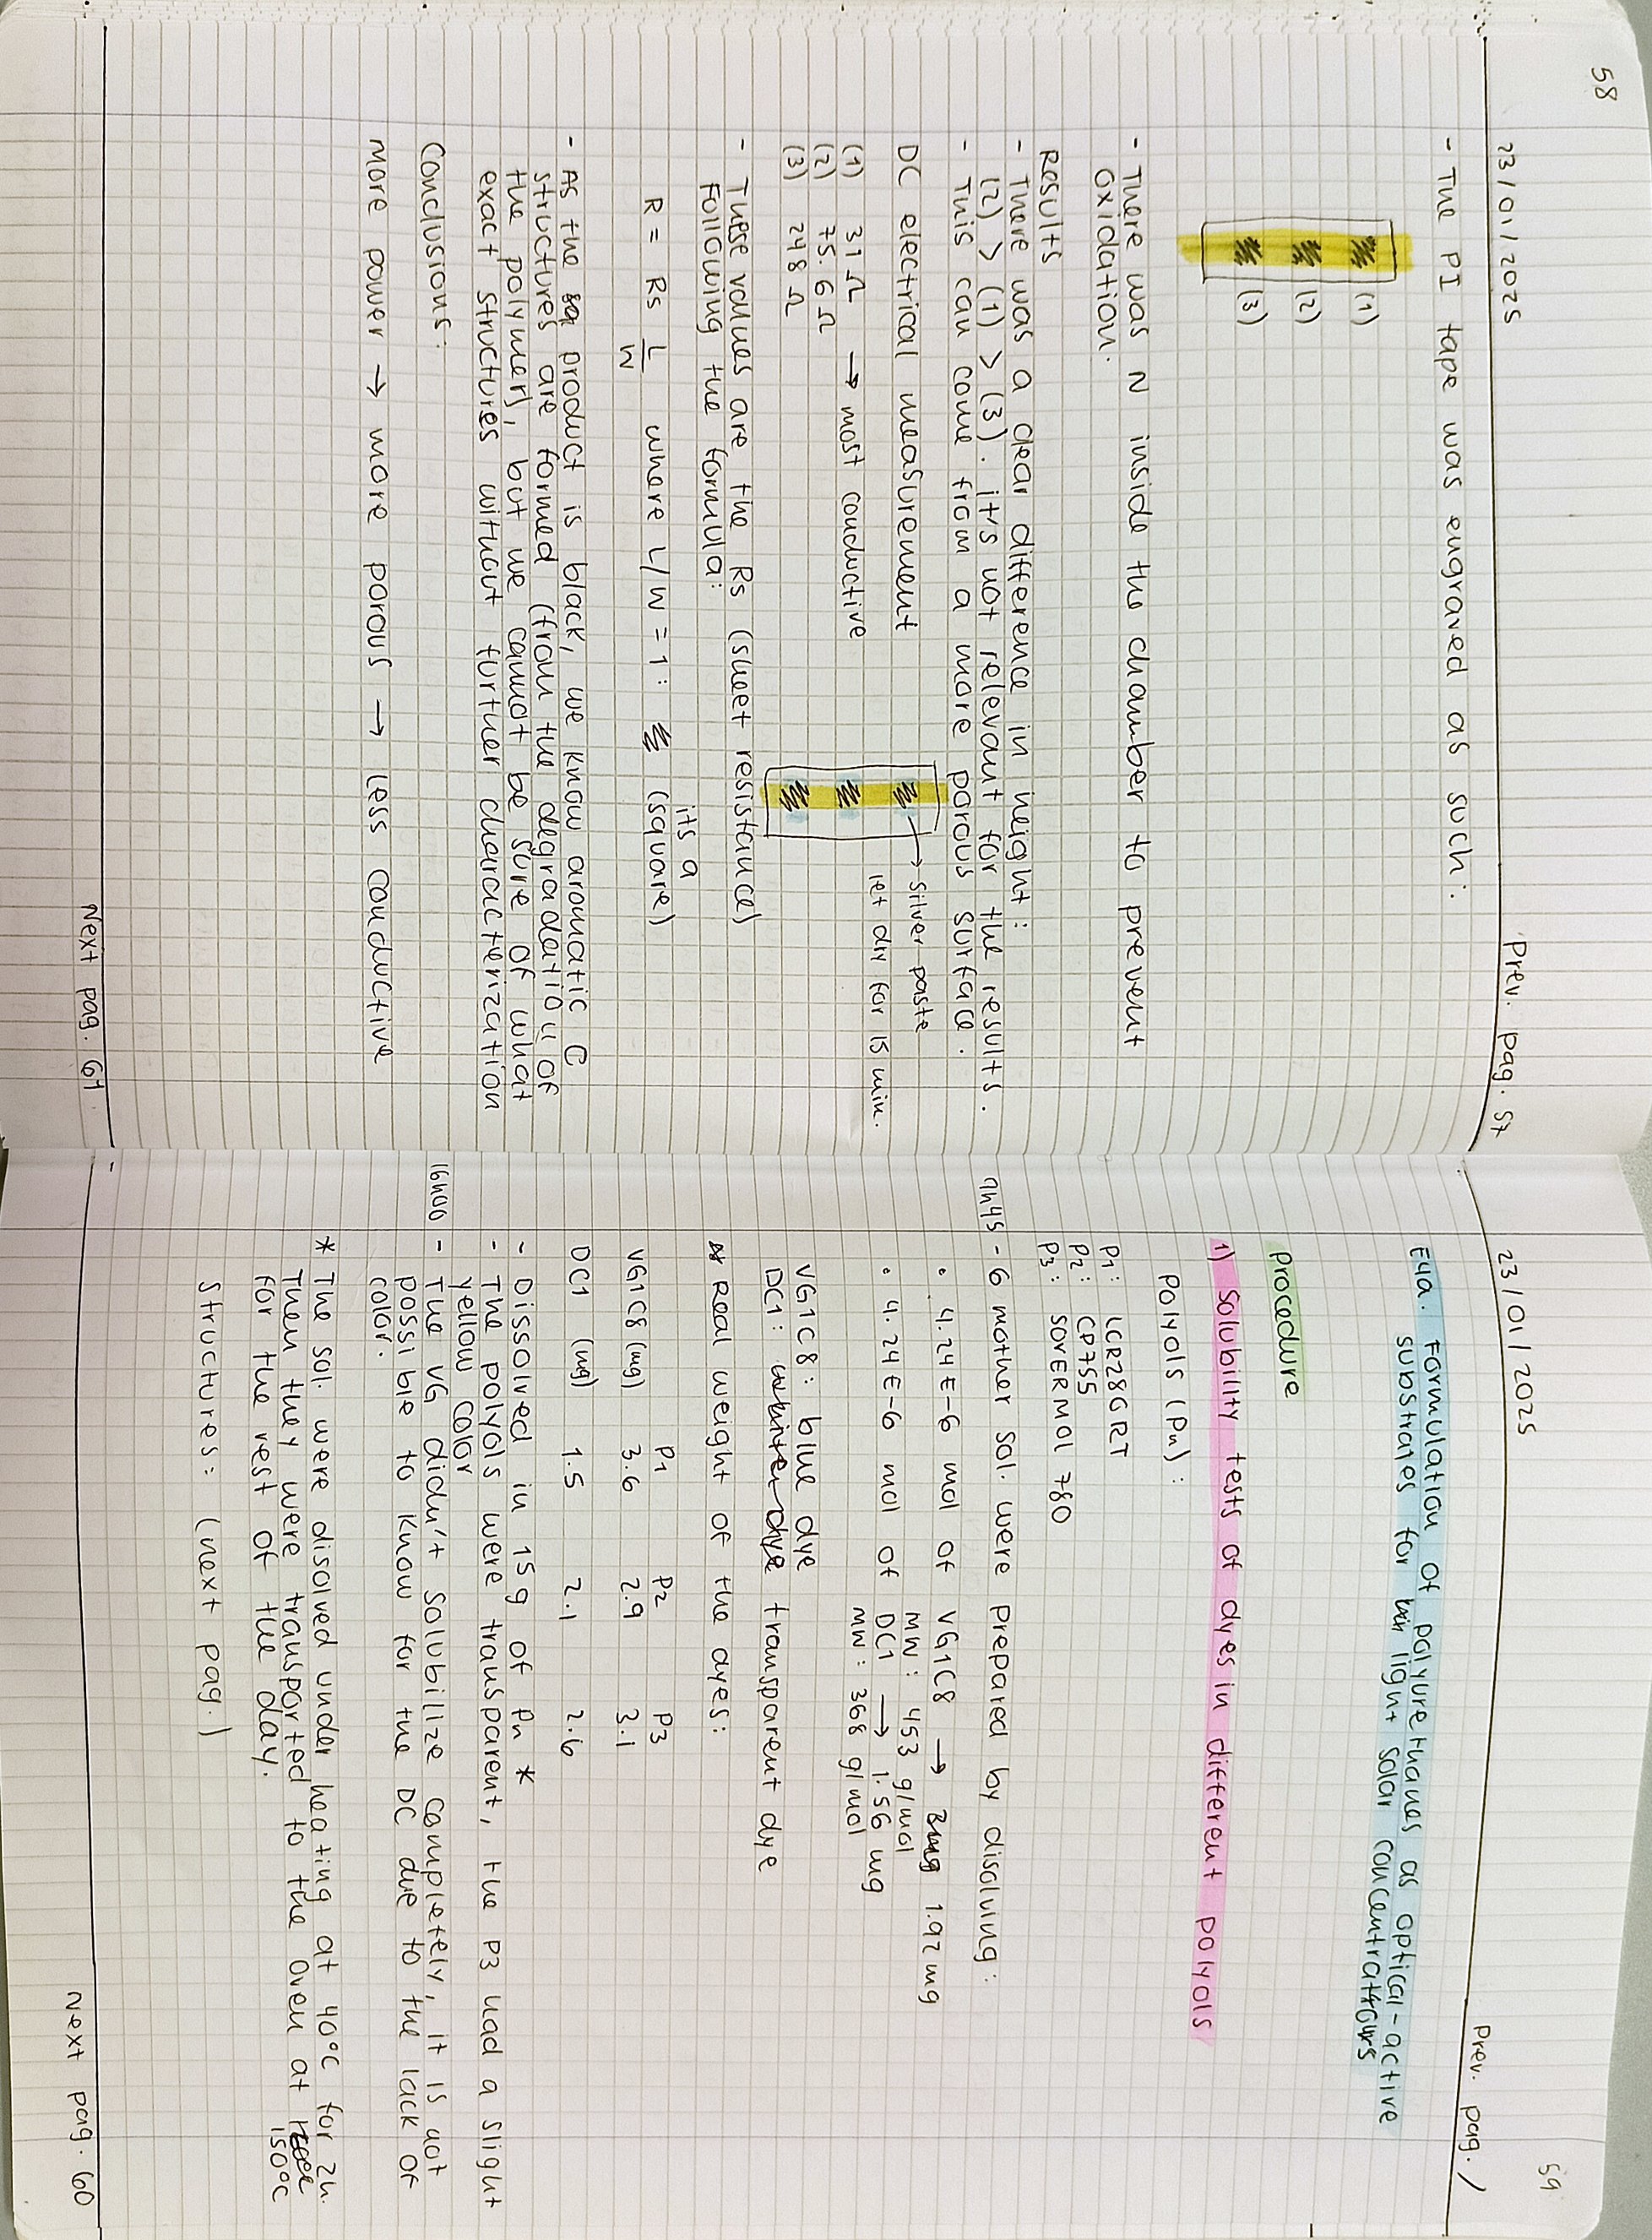 58
23/01/2025
Prev. pag. 57
- The PI tape was engraved as such:
(1)
(2)
(3)
- There was N inside the chamber to prevent
oxidation.
Results
- There was a clear difference in height:
(2) > (1) > (3). it's not relevant for the results.
- This can come from a more porous surface.
DC electrical measurement
→ silver paste
let dry for 15 min.
(1) 31 Ω → most conductive
(2) 75.6 Ω
(3) 248 Ω
- These values are the Rs (sheet resistance)
Following the formula:
R = Rs L/W where L/W = 1: (square)
its a
- As the product is black, we know aromatic C
structures are formed (from the degradation of
the polymer), but we cannot be sure of what
exact structures without further characterization
Conclusions:
More power → more porous → less conductive
Next pag. 61
59
23/01/2025
Prev. pag. /
E4a. Formulation of polyurethanes as optical-active
substrates for light solar concentrators
Procedure
1) Solubility tests of dyes in different polyols
Polyols (Pn):
P1: LCR28GRT
P2: CP755
P3: SOVERMOL 780
9h45 - 6 mother sol. were prepared by disolving:
• 4.24E-6 mol of VG1C8 → 1.92 mg
MW: 453 g/mol
• 4.24E-6 mol of DC1 → 1.56 mg
MW: 368 g/mol
VG1C8: blue dye
DC1: transparent dye
Real weight of the dyes:
P1 P2 P3
VG1C8 (mg) 3.6 2.9 3.1
DC1 (mg) 1.5 2.1 2.6
- Dissolved in 15 g of Pn *
- The polyols were transparent, the P3 had a slight
yellow color
16h00 - The VG didn't solubilize completely, it is not
possible to know for the DC due to the lack of
color.
* The sol. were disolved under heating at 40°C for 2h.
Then they were transported to the oven at 150°C
for the rest of the day.
Structures: (next pag.)
Next pag. 60